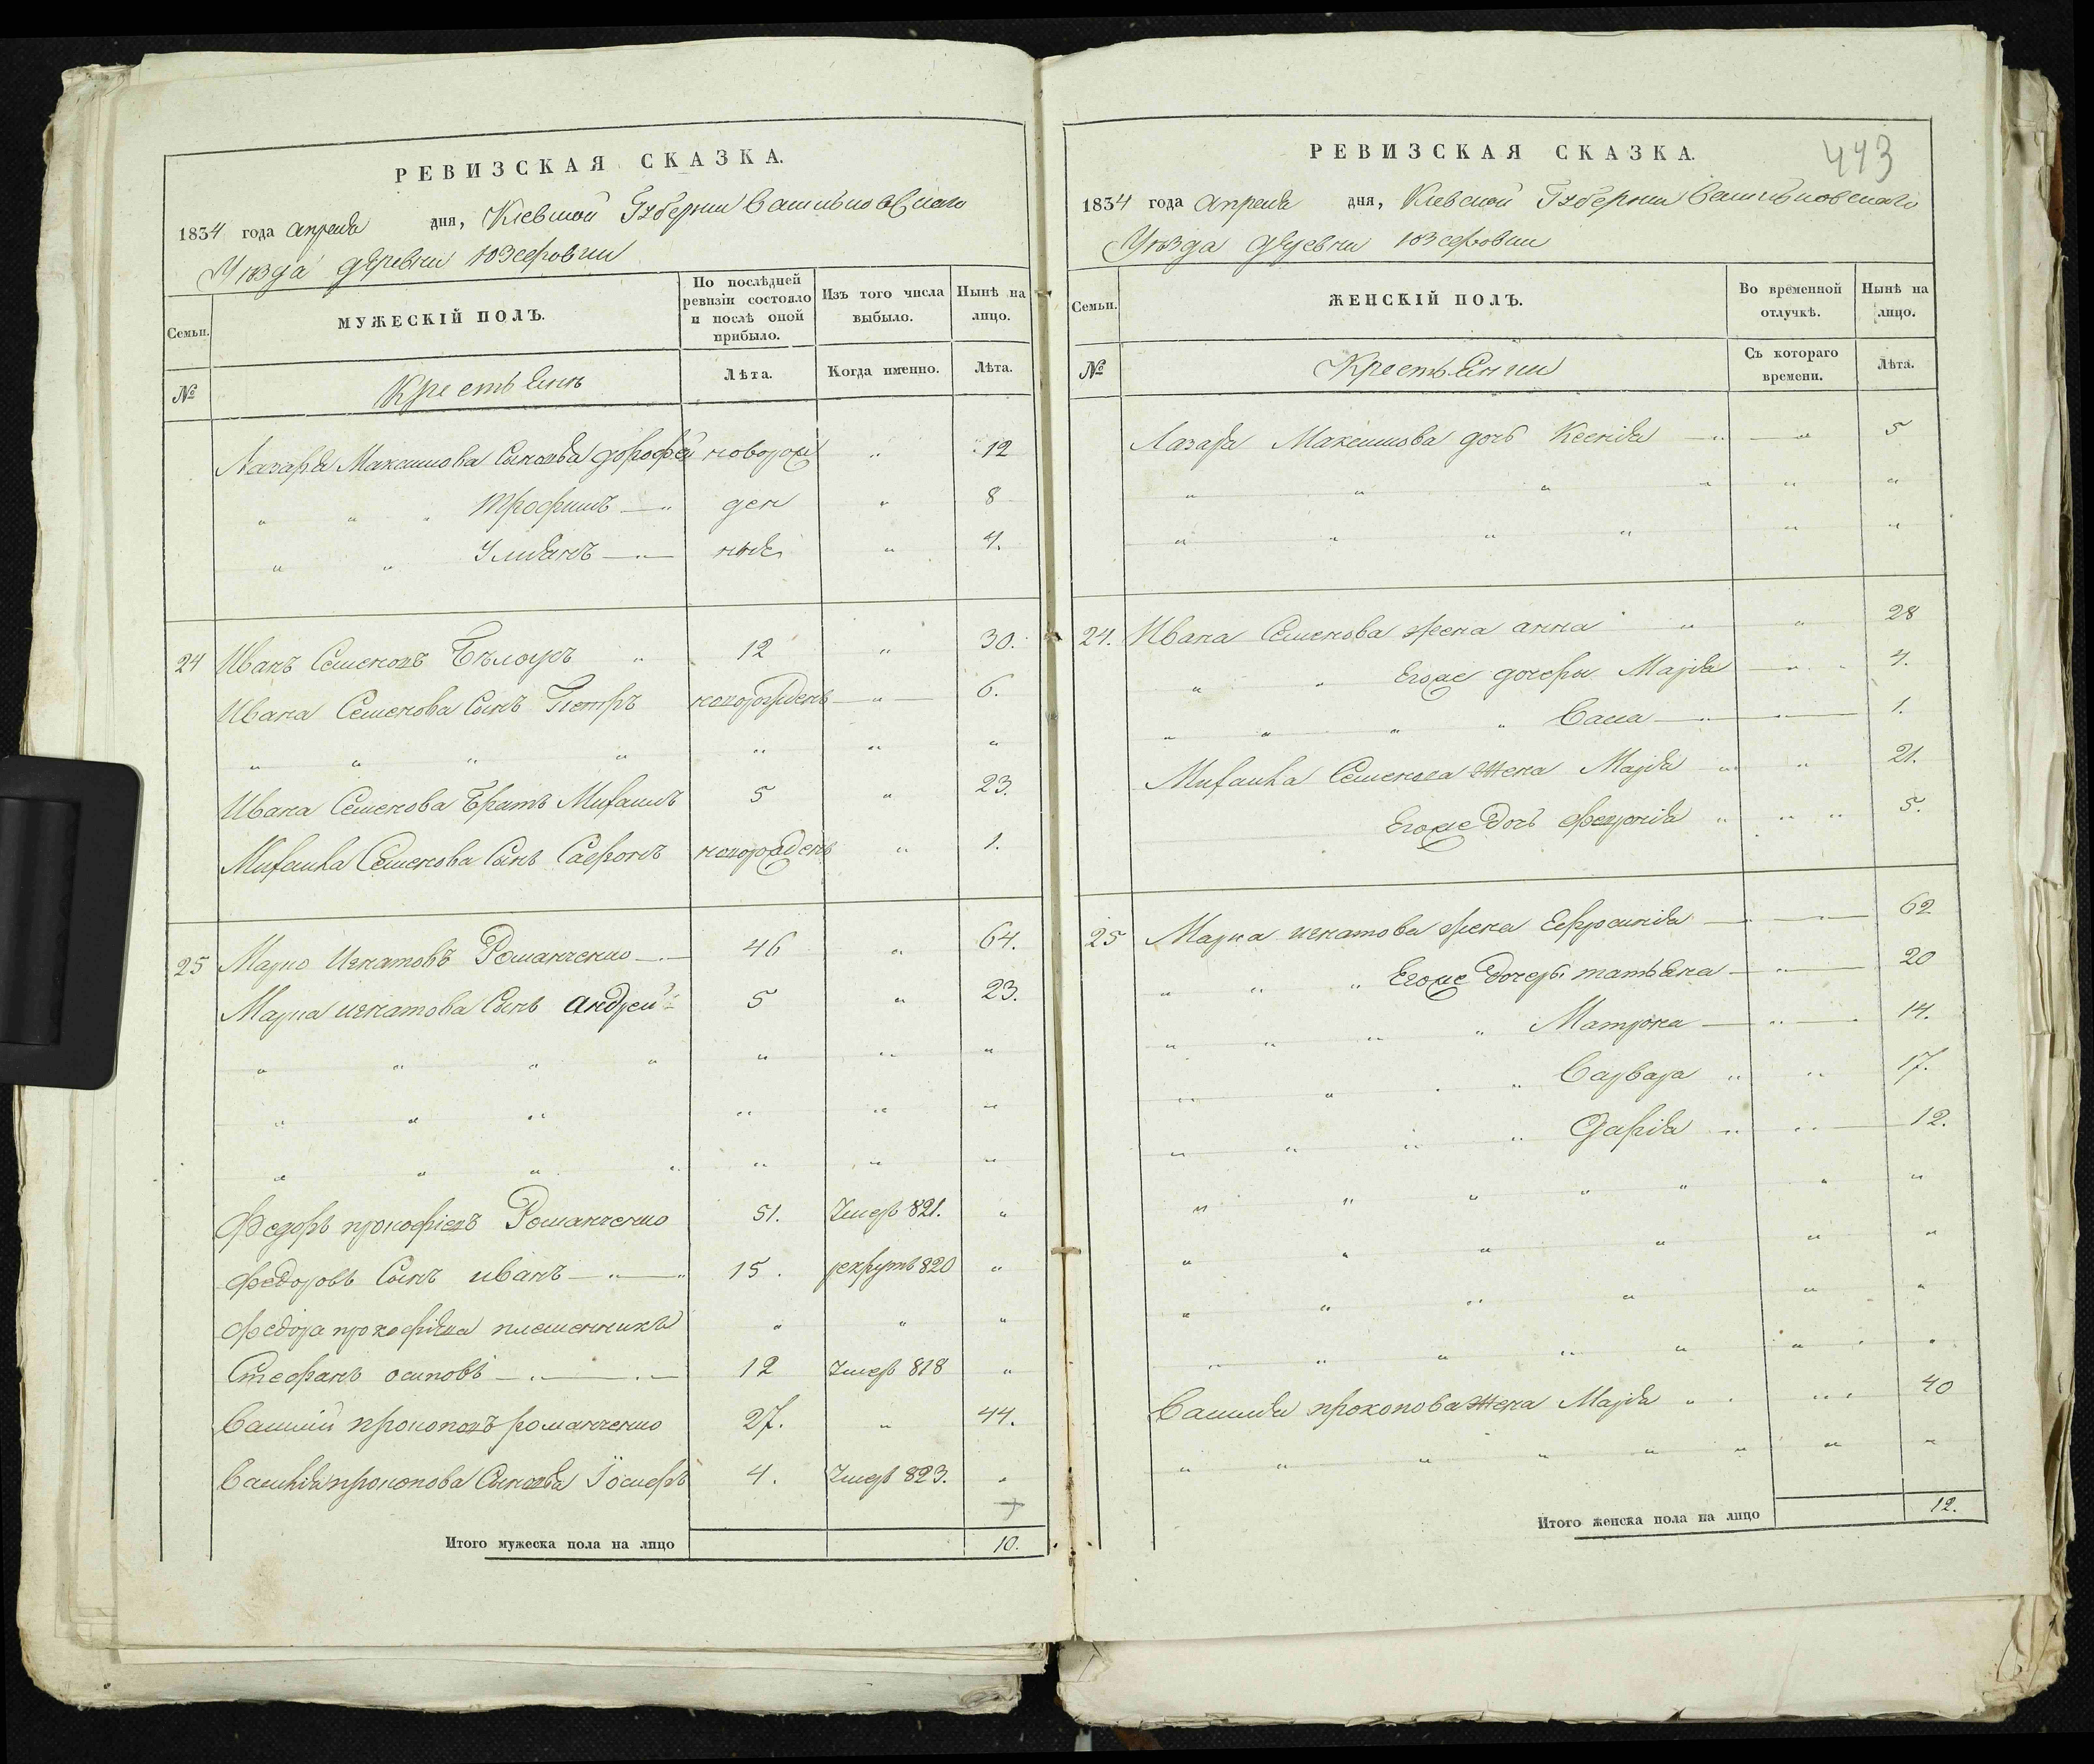 РЕВИЗСКАЯ СКАЗКА.
1834 года апреля дня, Киевской Губернии Васильковскаго
Уезда деревни Юзефовки
Семьи. МУЖЕСКІЙ ПОЛЪ. По послѣдней ревизіи состояло и послѣ оной прибыло. Изъ того числа выбыло. Нынѣ на лицо.
№ Крестьяне Лѣта. Когда именно. Лѣта.
Лазаря Максимова Сыновья дорофей новорож " 12
" " " Трофимъ " ден " 8
" " Улиянъ " ные " 4.
24 Иванъ Семеновъ Бѣлоусъ " 12 " 30.
Ивана Семенова Сынъ Петръ новорожденъ " 6.
" " " " " " "
Ивана Семенова Братъ Михаилъ 5 " 23.
Михаила Семенова Сынъ Сафонъ новорожденъ " 1.
25 Марко Игнатовъ Романченко 46 " 64.
Марка игнатова Сынъ Андрей 5 " 23.
" " " " " " "
" " " " " "
" " " " " " "
Федоръ прокофіевъ Романченко 51. Умеръ 821. "
Федоровъ Сынъ иванъ " " 15. рекрутъ 820 "
Федора прокофіева племенникъ " " "
Стефанъ осиповъ 12 Умеръ 818 "
Василий прокоповъ романченко 27. " 44.
Василия прокопова Сыновья Іосифъ 4. Умеръ 823. "
Итого мужеска пола на лицо 10.
443
РЕВИЗСКАЯ СКАЗКА.
1834 года апреля дня, Киевской Губернии Васильковскаго
Уезда деревни Юзефовки
Семьи. ЖЕНСКІЙ ПОЛЪ. Во временной отлучкѣ. Нынѣ на лицо.
№ Крестьянки Съ котораго времени. Лѣта.
Лазаря Максимова дочь Ксения " " 5
" " " " " "
" " " " " "
24. Ивана Семенова жена анна " " 28
" " Егоже дочери Марья " " 4.
" " " " Васса " " 1.
Михаила Семенова жена Марья " " 21.
Егоже дочь Феврония " " " 5.
25 Марка игнатова жена Ефросиния " 62
" " " Егоже дочеры татьяна " 20
" " " " Матрона " 14.
" " " " Варвара " " 17.
" " " " Дария " " 12.
" " " " " " "
" " " " " "
" " " " " "
" " " " " " "
Василия прокопова жена Марья " " 40
" " " " " " " "
Итого женска пола на лицо 12.